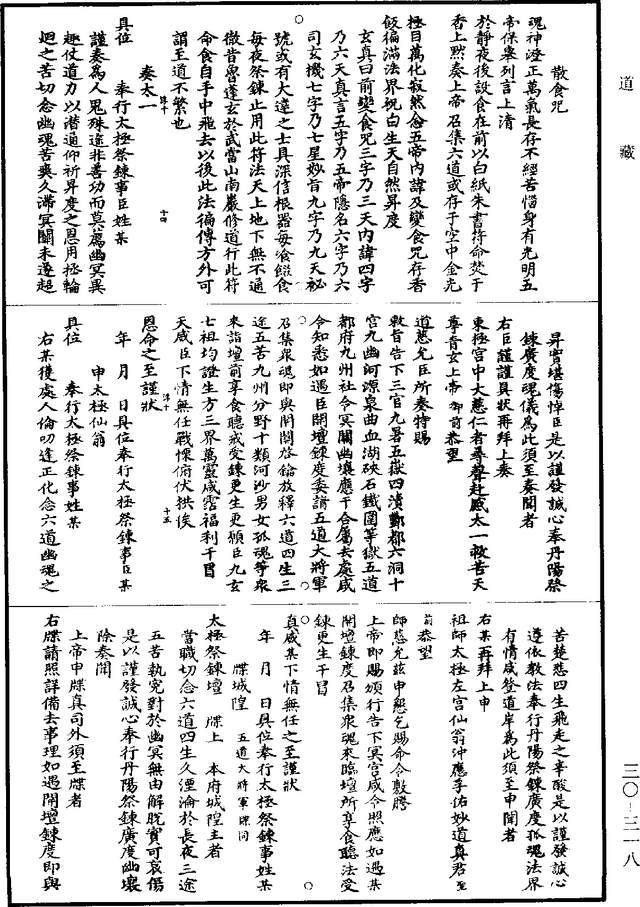 道藏
三〇—三一八
散食咒
魂神澄正萬氣長存不經苦惱身有光明五
帝保舉列言上清
於靜夜後設食在前以白紙朱書符命焚于
香上默奏上帝召集六道或存于空中金光
極目萬化寂然念五帝內諱及變食咒存香
飯徧滿法界祝白生天自然昇度
玄真曰前變食咒三字乃三天內諱四字
乃六天真言五字乃五帝隱名六字乃六
司玄機七字乃七星妙旨九字乃九天祕
號或有大達之士具深信根器每飡餕食
每夜祭鍊止用此符法天上地下無不通
徹昔曾蓬玄於武當山南巖修道行此符
命食自手中飛去以後此法徧傳方外可
謂至道不繁也
奏太一
具位　奉行太極祭鍊事臣姓某
謹奏為人鬼殊途非善功而莫薦幽冥異
趣仗道力以潛通仰祈昇度之恩用拯輪
迴之苦切念幽魂苦爽久滯冥關未遂超
昇實堪傷悼臣是以謹發誠心奉丹陽祭
鍊廣度魂儀為此須至奏聞者
右臣謹謹具狀再拜上奏
東極宮中大慈仁者尋聲赴感太一救苦天
尊青玄上帝　御前恭望
道慈允臣所奏特賜
敕旨告下三官九署五嶽四瀆酆都六洞十
宮九幽河源泉曲血湖硤石鐵圍等獄五道
都府九州社令冥關幽壤應干合屬去處咸
令知悉如遇臣開壇鍊度委請五道大將軍
召集眾魂即與開關啓鑰放釋六道四生三
途五苦九州分野十類河沙男女孤魂等眾
來詣壇前享食聽戒受鍊更生更願臣九玄
七祖均證生方三界萬靈咸霑福利干冒
天威臣下情無任戰慄俯伏拱俟
恩命之至謹狀
年　月　日具位奉行太極祭鍊事臣某
申太極仙翁
具位　奉行太極祭鍊事姓某
右某獲處人倫叨逢正化念六道幽魂之
苦楚悲四生飛走之辛酸是以謹發誠心
遵依教法奉行丹陽祭鍊廣度孤魂法界
有情咸登道岸為此須至申聞者
右某再拜上申
祖師太極左宮仙翁沖應孚佑妙道真君　至
前恭望
師慈允茲申懇乞賜命令敷謄
上帝即賜頒行告下冥官咸令照應如遇某
開壇鍊度召集眾魂來臨壇所享食聽法受
鍊更生干冒
真威某下情無任之至謹狀
年　月　日具位奉行太極祭鍊事姓某
牒城隍　五道大將軍牒同
太極祭鍊壇　牒上　本府城隍主者
當職切念六道四生久湮淪於長夜三途
五苦執寃對於幽冥無由解脫實可哀傷
是以謹發誠心奉行丹陽祭鍊廣度幽壤
除奏聞
上帝申牒真司外須至牒者
右牒請照詳備去事理如遇開壇鍊度即與